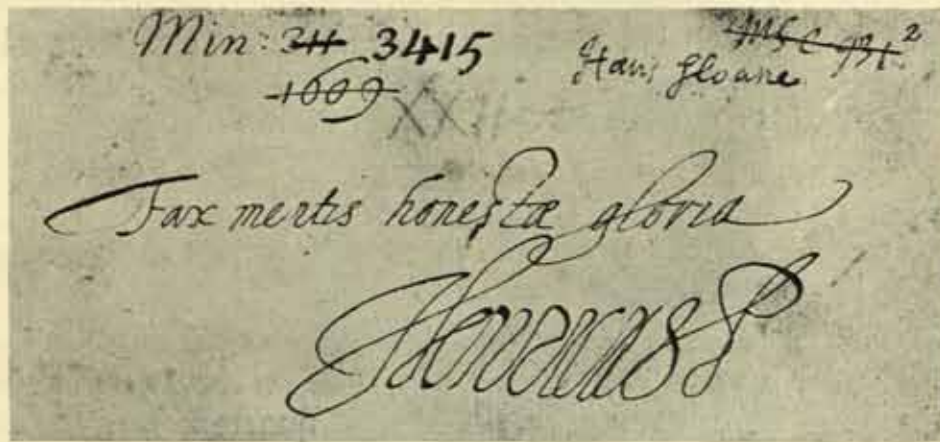 Min: 311 3415
1669
MS C 931²
Hans Sloane
XX
Fax mentis honestæ gloria
Henricus P